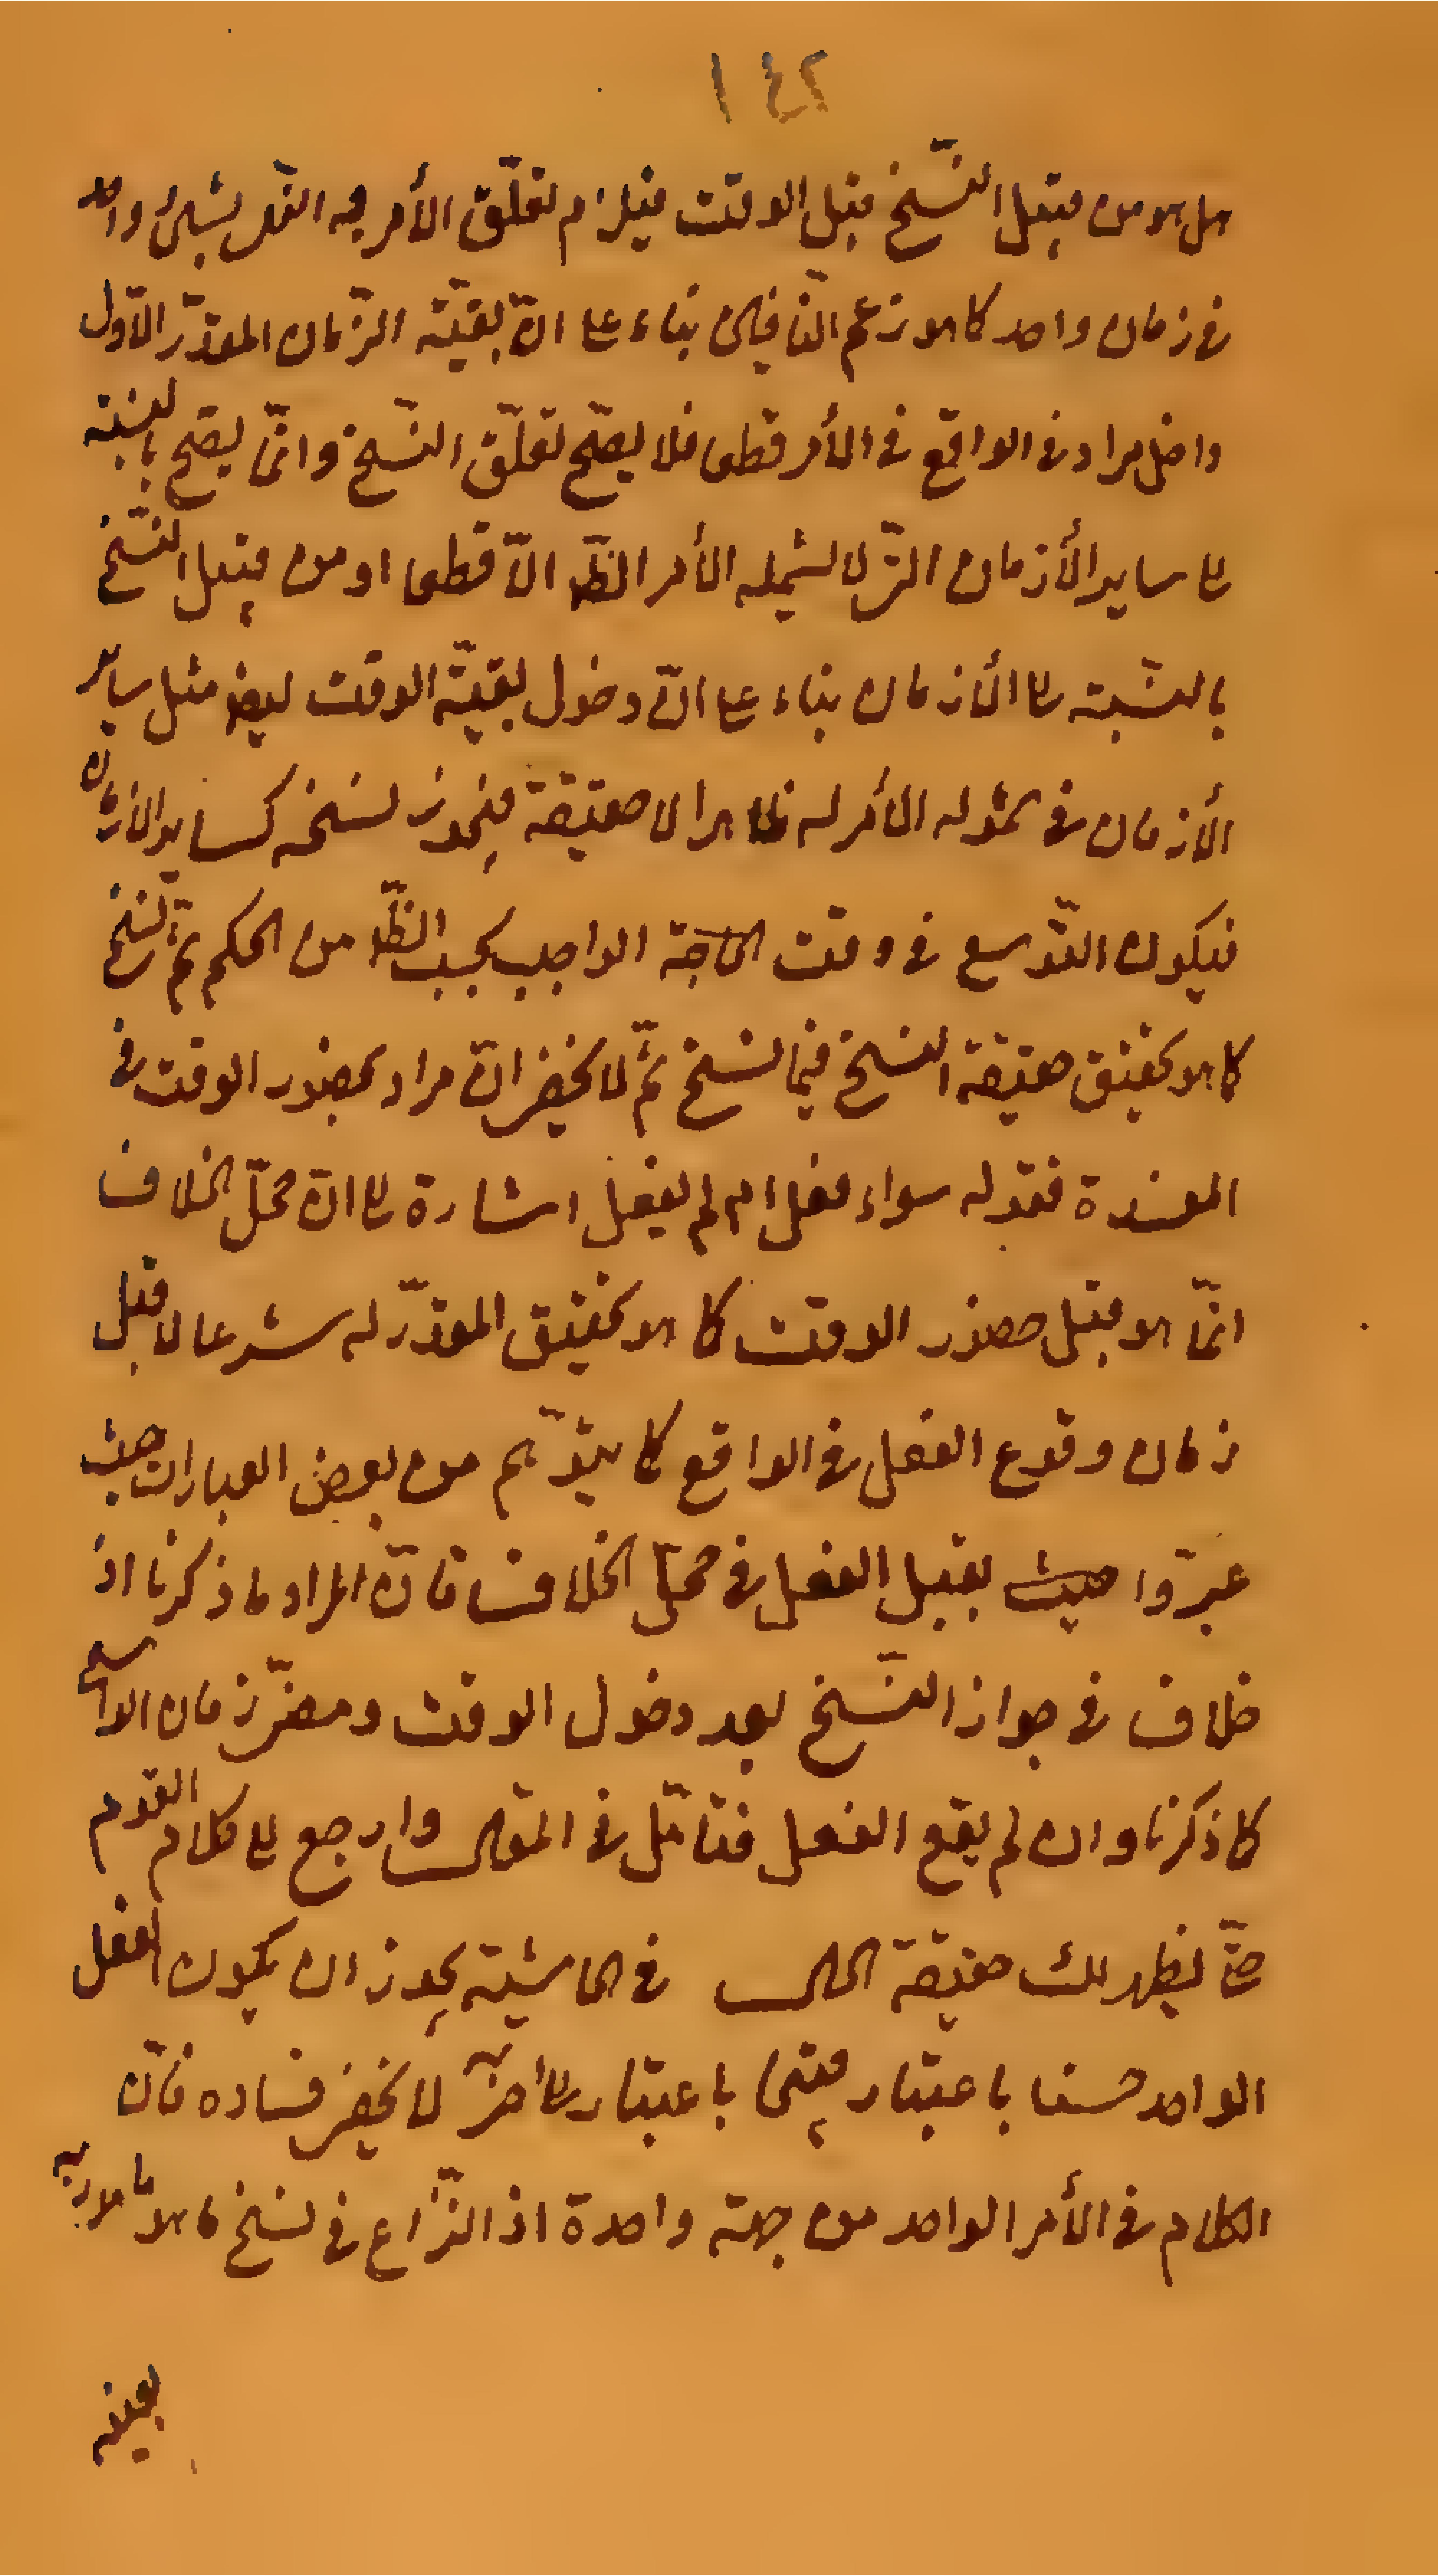 ١٤٢
هل هو من قبيل النسخ قبل الوقت فيلزم تعلّق الأمر به التكـ بشىء واحد
فى زمان واحد كما هو زعم النّافين بناء على انّ بقيّة الزّمان المقدّر الأوّل
داخل مراد فى الواقع فى الأمر قطعا فلا يصحّ تعلّق النّسخ وانّما يصحّ بالنسبة
الى ساير الأزمان الّتى لا يشمله الأمر الظّ الّا قطعا او من قبيل النّسخ
بالنّسبة الى الأزمان بناء على انّ دخول بقيّة الوقت ايضا مثل ساير
الأزمان فى شموله الأمر له ظاهرا لا حقيقة فيجوز نسخه كساير الازمان
فيكون التّوسع فى وقت الحاجة الواجب بحسب الظّ من الحكم ثمّ نسخ
كما هو تحقيق حقيقة النسخ فيما نسخ ثمّ لا يخفى انّ مراد بحضور الوقت فى
فقوله سواء فعل ام لم يفعل اشارة الى انّ محلّ الخلاف
انّما هو قبل حضور الوقت كما هو تحقيق المقدّر له شرعا لا قبل
زمان وقوع الفعل فى الواقع كما يتوّهم من بعض العبارات حيث
عبرّوا حيث بقبل الفعل فى محلّ الخلاف فانّ المراد ما ذكرنا اذ
خلاف فى جواز النّسخ بعد دخول الوقت ومضىّ زمان
كما ذكرنا وان لم يقع الفعل فتامّل فى المقـ وارجع الى كلام القوم
حتّى يظهر لك حقيقة الحال فى الحاشية يجوز ان يكون الفعل
الواحد حسنا باعتبار قبيحا باعتبار لا يخفى فساده فانّ
الكلام فى الأمر الواحد من جهة واحدة اذ النّزاع فى نسخ ما هو
بعينه